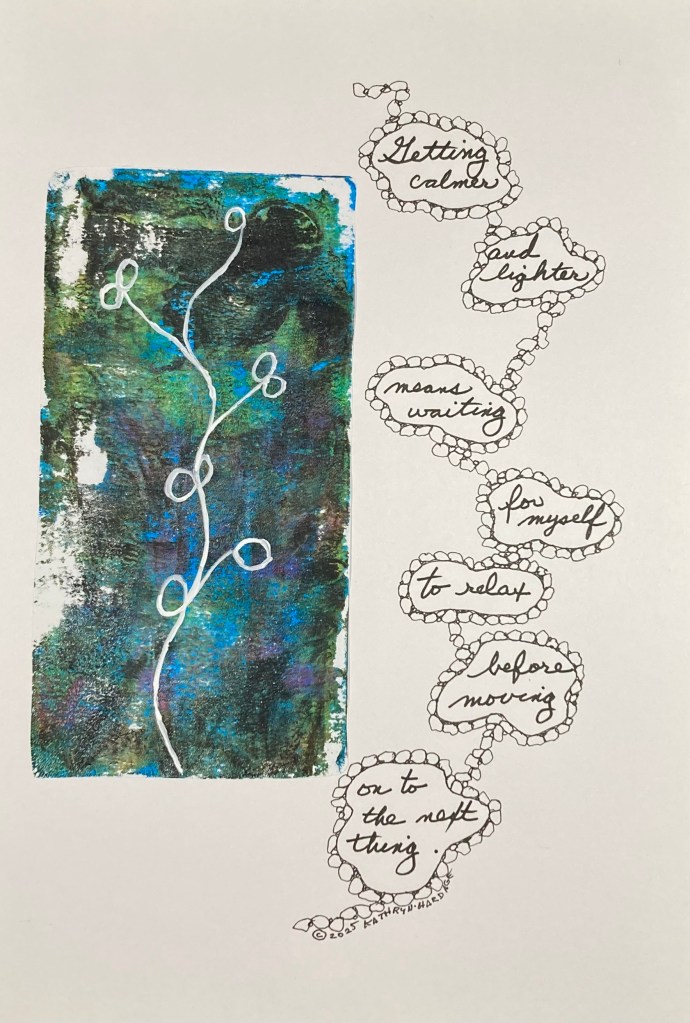 Getting
calmer
and
lighter
means
waiting
for
myself
to relax
before
moving
on to
the next
thing.
© 2025 KATHRYN HARDAGE